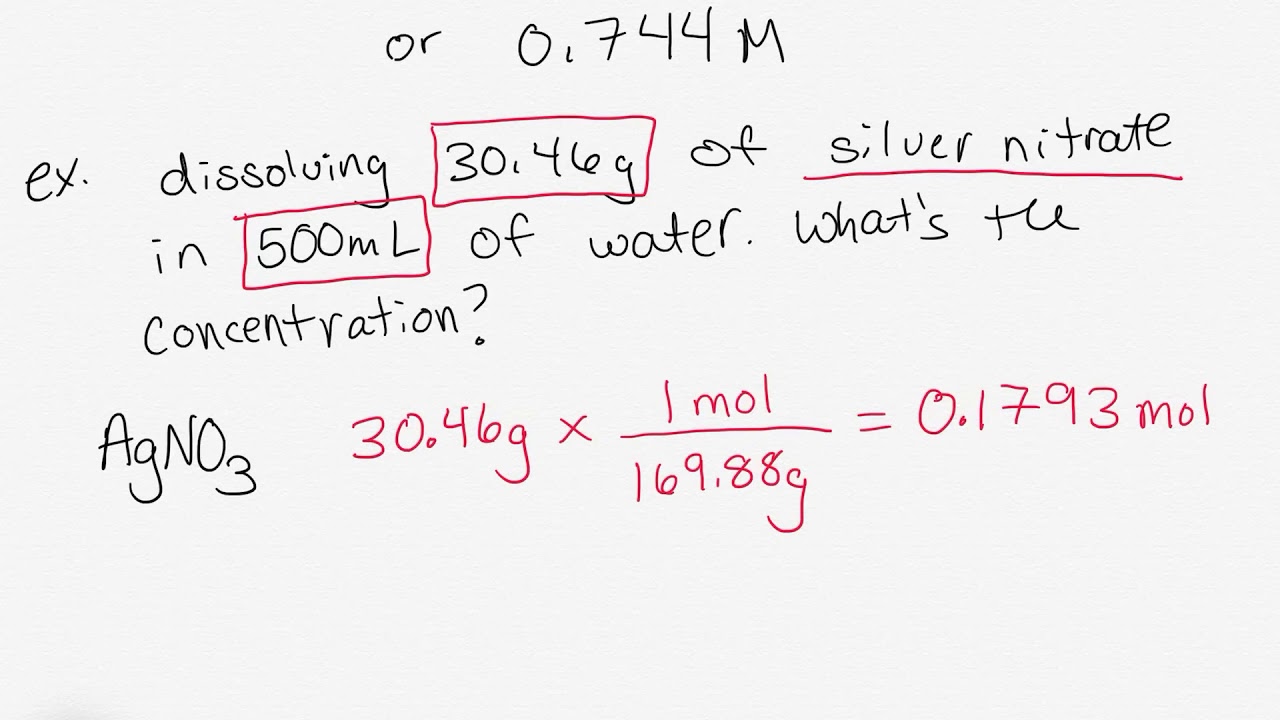 or 0.744 M
ex. dissolving 30.46g of silver nitrate
in 500mL of water. What's the
concentration?
AgNO₃ 30.46g × 1 mol / 169.88g = 0.1793 mol